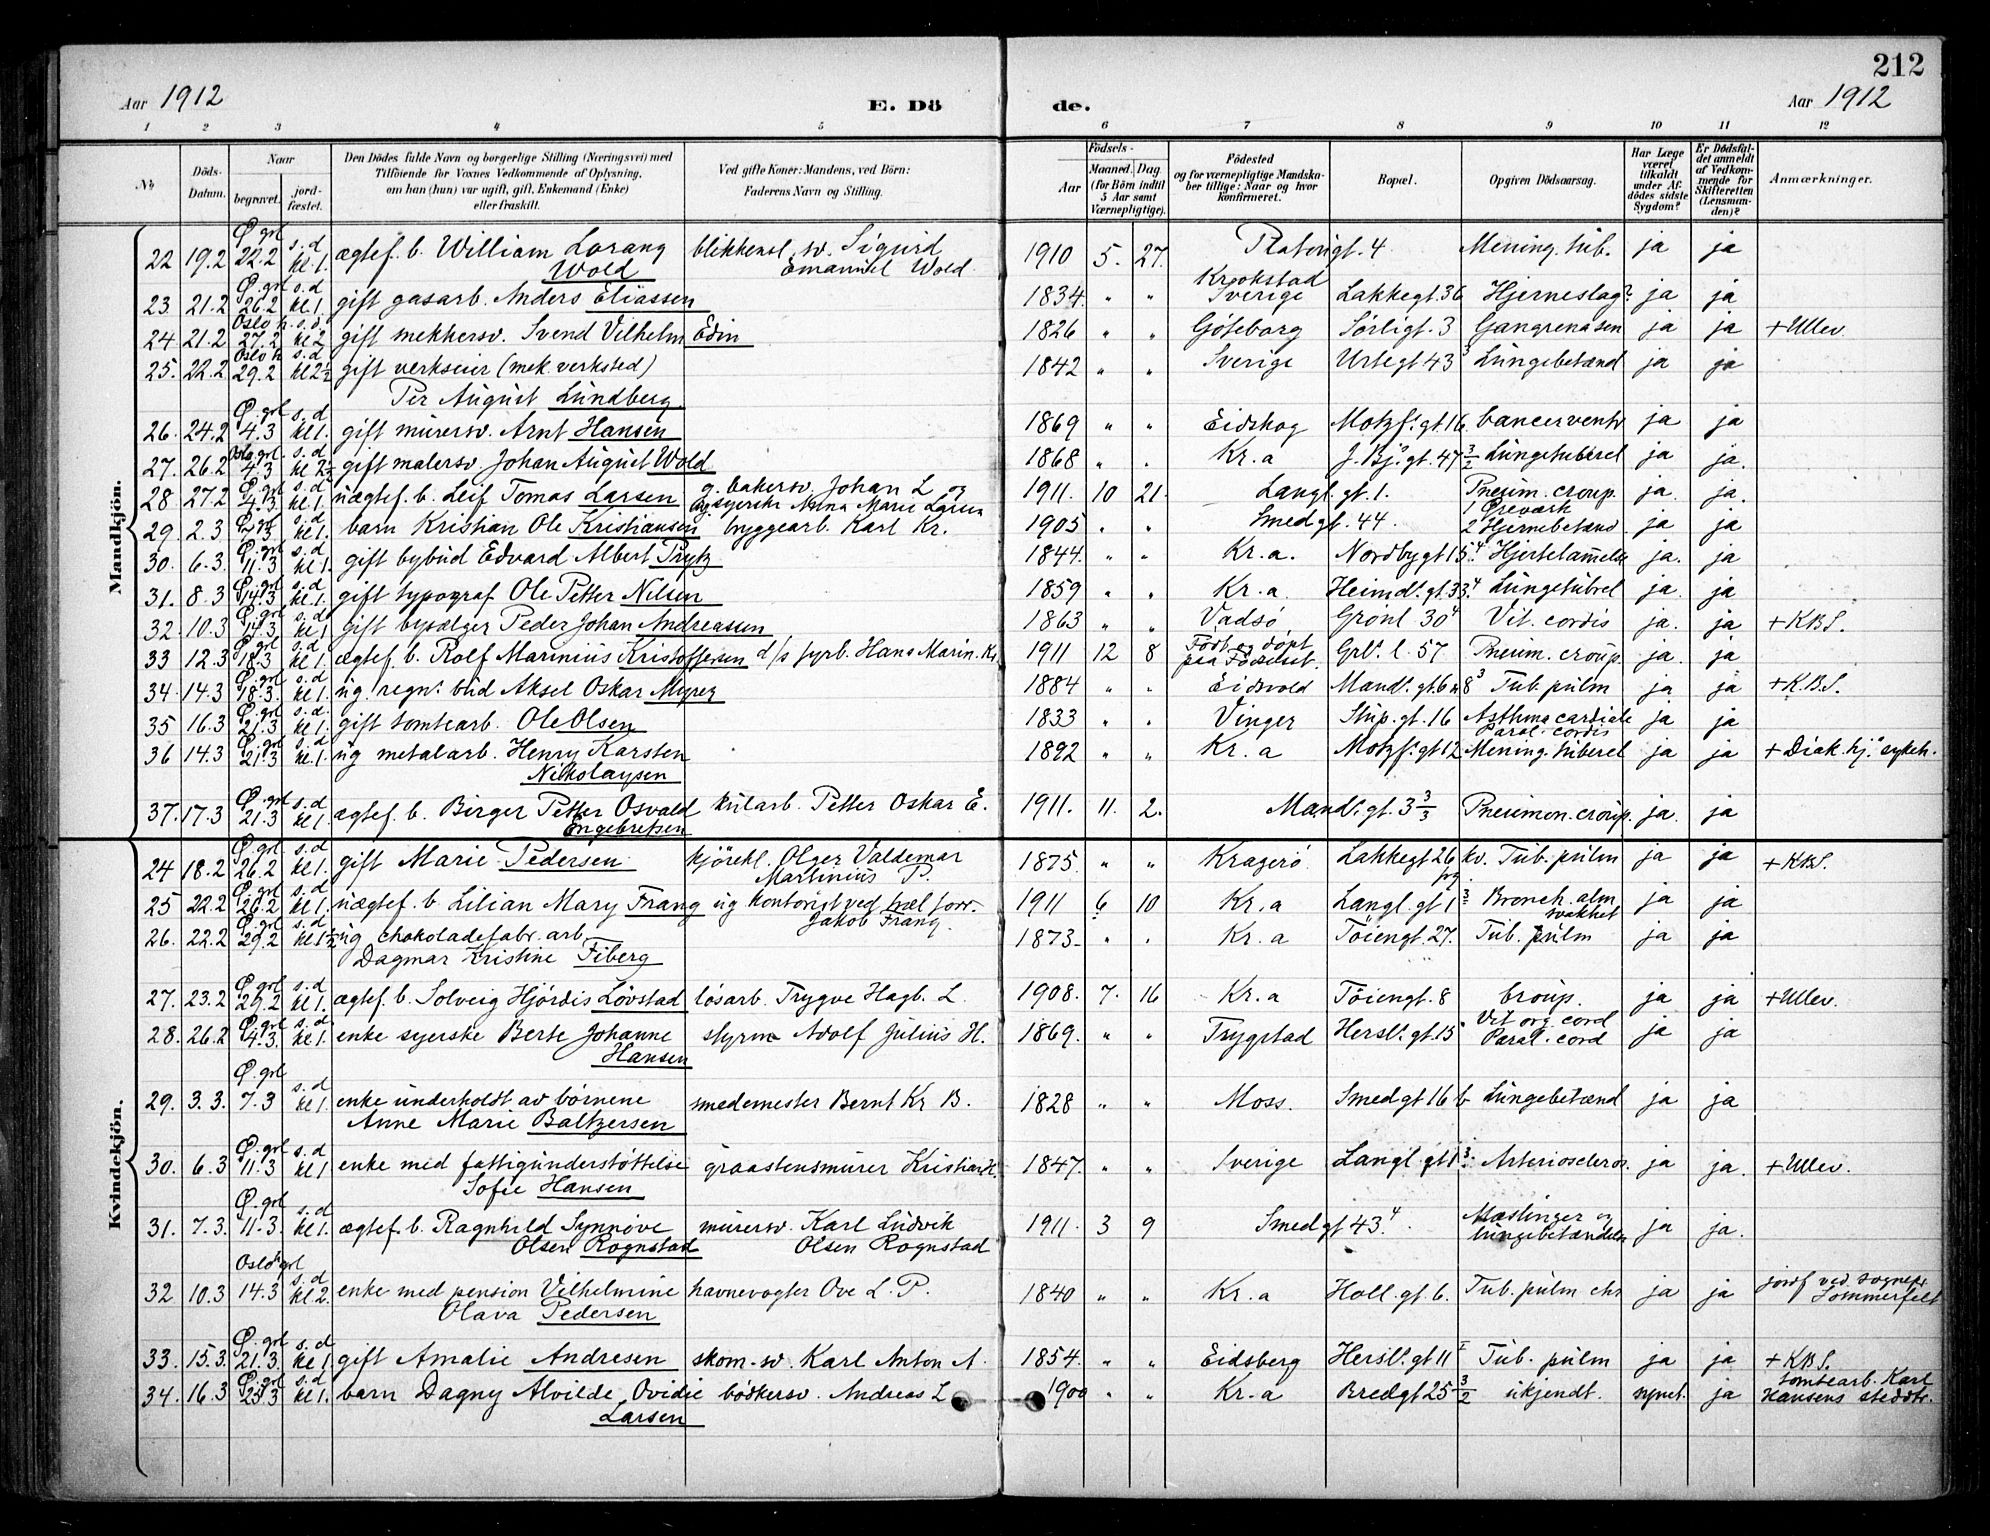 212
Aar 1912
E. Dö
de.
Aar 1912
1 2 3 4 5 6 7 8 9 10 11 12
No
Döds-Datum.
Naar
begravet.
jord-fæstet.
Den Dödes fulde Navn og borgerlige Stilling (Næringsvei) med
Tilföiende for Voxnes Vedkommende af Oplysning,
om han (hun) var ugift, gift, Enkemand (Enke)
eller fraskilt.
Ved gifte Koner: Mandens, ved Börn:
Faderens Navn og Stilling.
Födsels-
Aar
Maaned.
Dag
(for Börn indtil
5 Aar samt
Værnepligtige).
Födested
og for værnepligtige Mandska-
ber tillige: Naar og hvor
konfirmeret.
Bopæl.
Opgiven Dödsaarsag.
Har Læge
været
tilkaldt
under Af-
dödes sidste
Sygdom?
Er Dödsfal-
det anmeldt
af Vedkom-
mende for
Skifteretten
(Lensman-
den)?
Anmærkninger.
Mandkjön.
22 19.2 Ø. grl 22.2 s.d kl 1. ægtef. b. William Lorang Wold blikkensl. sv. Sigurd Emanuel Wold 1910 5. 27. Platousgt. 4 Mening. tub. ja ja
23. 21.2 Ø. grl 26.2 s.d kl 1. gift gasarb. Anders Eliassen 1834. " " Krookstad Sverige Lakkegt. 36 Hjerneslag? ja ja
24 21.2 Oslo k. 27.2 s.d. kl 2 gift mekkersv. Svend Vilhelm Edin 1826 " " Göteborg Sörligt. 3 Gangrena sen ja ja + Ullev.
25. 22.2 Oslo k 29.2 s.d kl 2½ gift verkseier (mek. verksted)
Per August Lundberg 1842 " " Sverige Urtegt 43 3 Lungebetænd ja ja
26. 24.2 Ø. grl 4.3 s.d kl 1. gift murersv. Arnt Hansen 1869 " " Eidskog Motzf. gt. 16. Cancer ventr ja ja
27. 26.2 Oslo grl. 4.3 s.d kl 2½ gift malersv. Johan August Wold 1868 " . Kr.a J. Bj. gt. 47 3/2 Lungetuberel ja ja.
28 27.2 Ø. grl 4.3 s.d kl 1. uægtef. b. Leif Tomas Larsen g. bakersv. Johan L og syerske Anna Marie Larsen 1911. 10 21. Langl. gt. 1. Pneum. croup. ja. ja.
29. 2.3 Ø. grl s.d kl 1. barn Kristian Ole Kristiansen byggearb. Karl Kr. 1905 " " Smedgt. 44. 1 Öreværk 2 Hjernebetænd. ja ja
30. 6.3. Ø. grl 11.3 s.d kl 1. gift bybud Edvard Albert Prytz 1844. " " Kr.a. Nordbygt 15. 4 Hjertelammelse ja. ja
31. 8.3 Ø. grl 14.3 s.d kl. 1. gift typograf Ole Petter Nilsen 1859 " " Kr.a Heimdl. gt. 33. 4 Lungetubrel ja. ja
32. 10.3 Ø. grl s.d kl 1 gift bysælger Peder Johan Andreassen 1863 " " Vadsö Grönl 30 4 Vit. cordis ja. ja + KBS.
33 12.3 Ø. grl 18.3 s.d kl 1. ægtef. b. Rolf Marinius Kristoffersen d/s fyrb. Hans Marin. Kr. 1911 12 8 Födt og döpt paa Födselsst. Grl. l. 57 Pneum. croup. ja. ja
34. 14.3 Ø. grl 18.3. s.d kl 1. ug regn. bud Aksel Oskar Myrer 1884 " " Eidsvold Mandl. gt. 6 8 3 Tub. pulm ja ja + K.B.S.
35 16.3 Ø. grl 21.3 s.d. kl 1. gift tomtearb. Ole Olsen 1833 " . Vinger Stup. gt. 16 Asthma cardiale Paral. cordis ja ja
36 14.3 Ø. grl 21.3 s.d kl. 1. ug metalarb. Henry Karsten
Nikolaysen 1892 " " Kr.a Motzf. gt 12 Mening. tuberel ja ja + Diak. hj. sykeh.
37. 17.3 Ø. grl 21.3 s.d kl 1. ægtef. b. Birger Petter Osvald
Engebretsen kularb. Petter Oskar E. 1911. 11. 2. Mandl. gt. 3 3/3 Pneumon. croup. ja. ja
Kvindekjön.
24 18.2 Ø. grl 26.2 s.d kl 1. gift Marie Pedersen kjörekl. Olger Valdemar Martinius P. 1875. " " Kragerö Lakkegt 26 Tub. pulm ja ja + KBS.
25 22.2 Ø. grl 26.2 s.d kl 1. uægtef. b Lilian Mary Frang ug kontorist ved Jakob Frang. 1911 6 10 Kr.a Langl. gt 1 3 Bronch. alm svakhet ja ja
26. 22.2 Ø. grl 29.2 s.d kl 1½ ug chokoladefabr. arb.
Dagmar Kristine Fiberg 1873 " . Kr.a Töiengt. 27. Tub. pulm ja ja
27. 23.2 Ø. grl 29.2 s.d kl 1. ægtef. b. Solveig Hjördis Lövstad lösarb. Trygve Hagb. L. 1908. 7. 16 Kr.a Töiengt. 8 Croup. ja ja + Ullev.
28. 26.2 Ø. grl 4.3. s.d kl 1. enke syerske Berte Johanne
Hansen styrm Adolf Julius H. 1869. " " Trygstad Hersl. gt. 15 Vit org cord Paral. cord ja ja
29. 3.3. Ø. grl 7.3 s.d kl 1. enke underholdt av börnene
Anne Marie Baltzersen smedemester Bernt Kr B. 1828 " " Moss. Smedgt 16 b Lungebetænd ja ja
30. 6.3 Ø. grl 11.3 s.d kl 1 enke med fattigunderstöttelse
Sofie Hansen graastensmurer Kristian H. 1847. " " Sverige Langl. gt 1 3. Arterioscleros. ja ja. + Ullev.
31. 7.3. Ø. grl 11.3. s.d kl 1. ægtef. b. Ragnhild Synnöve
Olsen Rognstad murersv. Karl Ludvik
Olsen Rognstad 1911. 3 9 Smedgt 43 4. Mæslinger og lungebetændelse ja ja.
32 10.3 Oslo grl 14.3 s.d kl 2. enke med pension Vilhelmine
Olava Pedersen havnevogter Ove L. P. 1840 " " Kr.a Holl. gt. 6. Tub. pulm chr ja ja jordf ved sognepr. Sommerfelt
33. 15.3. Ø. grl 21.3. s.d kl 1. gift Amalie Andresen skom. sv. Karl Anton A. 1854. " " Eidsberg Hersl. gt 11 I Tub. pulm ja ja + KBS.
34. 16.3 Ø. grl 23.3 s.d kl 1. barn Dagny Alvilde Ovidie
Larsen bödkersv. Andreas L 1900 " " Kr.a Bredgt 25 3/2 ukjendt. synet. ja tomtearb. Karl Hansens steddtr.